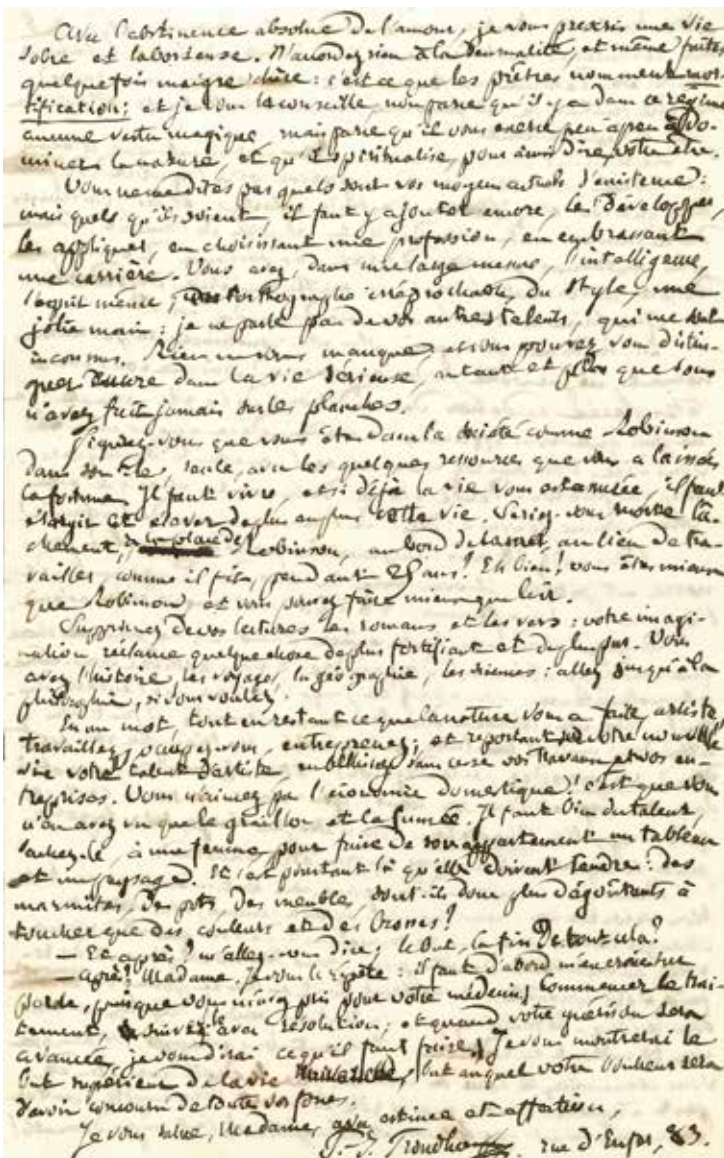 Avec l'abstinence absolue de l'amour, je vous prescris une vie
sobre et laborieuse. N'accordez rien à la sensualité, et même faites
quelquefois maigre chère : c'est ce que les prêtres nomment mor-
tification; et je vous la conseille, non parce qu'il y a dans ce régime
aucune vertu magique, mais parce qu'il vous exerce peu à peu à Do-
miner la nature, et qu'il spiritualise, pour ainsi dire, votre être.
Vous ne me dites pas quels sont vos moyens actuels d'existence :
mais quels qu'ils soient, il faut y ajouter encore, les Développer,
les appliquer, en choisissant une profession, en embrassant
une carrière. Vous avez, dans une large mesure, l'intelligence,
l'esprit même; orthographe irréprochable, du style, une
jolie main : je ne parle pas de vos autres talents, qui me sont
inconnus. Rien ne vous manque, et vous pouvez vous distin-
guer encore dans la vie sérieuse, autant et plus que vous
n'avez fait jamais sur les planches.
Figurez-vous que vous êtes dans la société comme Robinson
dans son île, seule, avec les quelques ressources que vous a laissées
la fortune. Il faut vivre, et si déjà la vie vous est , il faut
élargir et élever de plus en plus cette vie. Seriez-vous morte lâ-
chement, à la place de Robinson, au bord de la mer, au lieu de tra-
vailler, comme il fit, pendant 25 ans? Eh bien! vous êtes mieux
que Robinson, et vous pouvez faire mieux que lui.
Supprimez de vos lectures les romans et les vers : votre imagi-
nation réclame quelque chose de plus fortifiant et de plus pur. Vous
avez l'histoire, les voyages, la géographie, les sciences : allez jusqu'à la
philosophie, si vous voulez.
En un mot, tout en restant ce que la nature vous a faite, artiste,
travaillez, occupez-vous, entreprenez; et reportant sur votre nouvelle
vie votre talent d'artiste, embellissez sans cesse vos travaux et vos en-
treprises. Vous n'aimez pas l'économie domestique! c'est que vous
n'en avez vu que le graillon et la fumée. Il faut bien du talent,
sachez-le, à une femme, pour faire de son appartement un tableau
et un paysage. Et c'est pourtant là qu'elles doivent tendre : des
marmites, des pots, des meubles, sont-ils donc plus dégoûtants à
toucher que des couleurs et des brosses?
— Et après? m'allez-vous dire; le but, la fin De tout cela?
— Après! Madame, je vous le répète : il faut d'abord m'en croire sur
parole, puisque vous m'avez pris pour votre médecin; commencer le trai-
tement, le suivre avec résolution; et quand votre guérison sera
avancée, je vous dirai ce qu'il faut faire. Je vous montrerai le
but supérieur de la vie , but auquel votre bonheur sera
d'avoir concouru de toutes vos forces.
Je vous salue, Madame, avec estime et affection,
P.-J. Proudhon rue d'Enfer, 83.